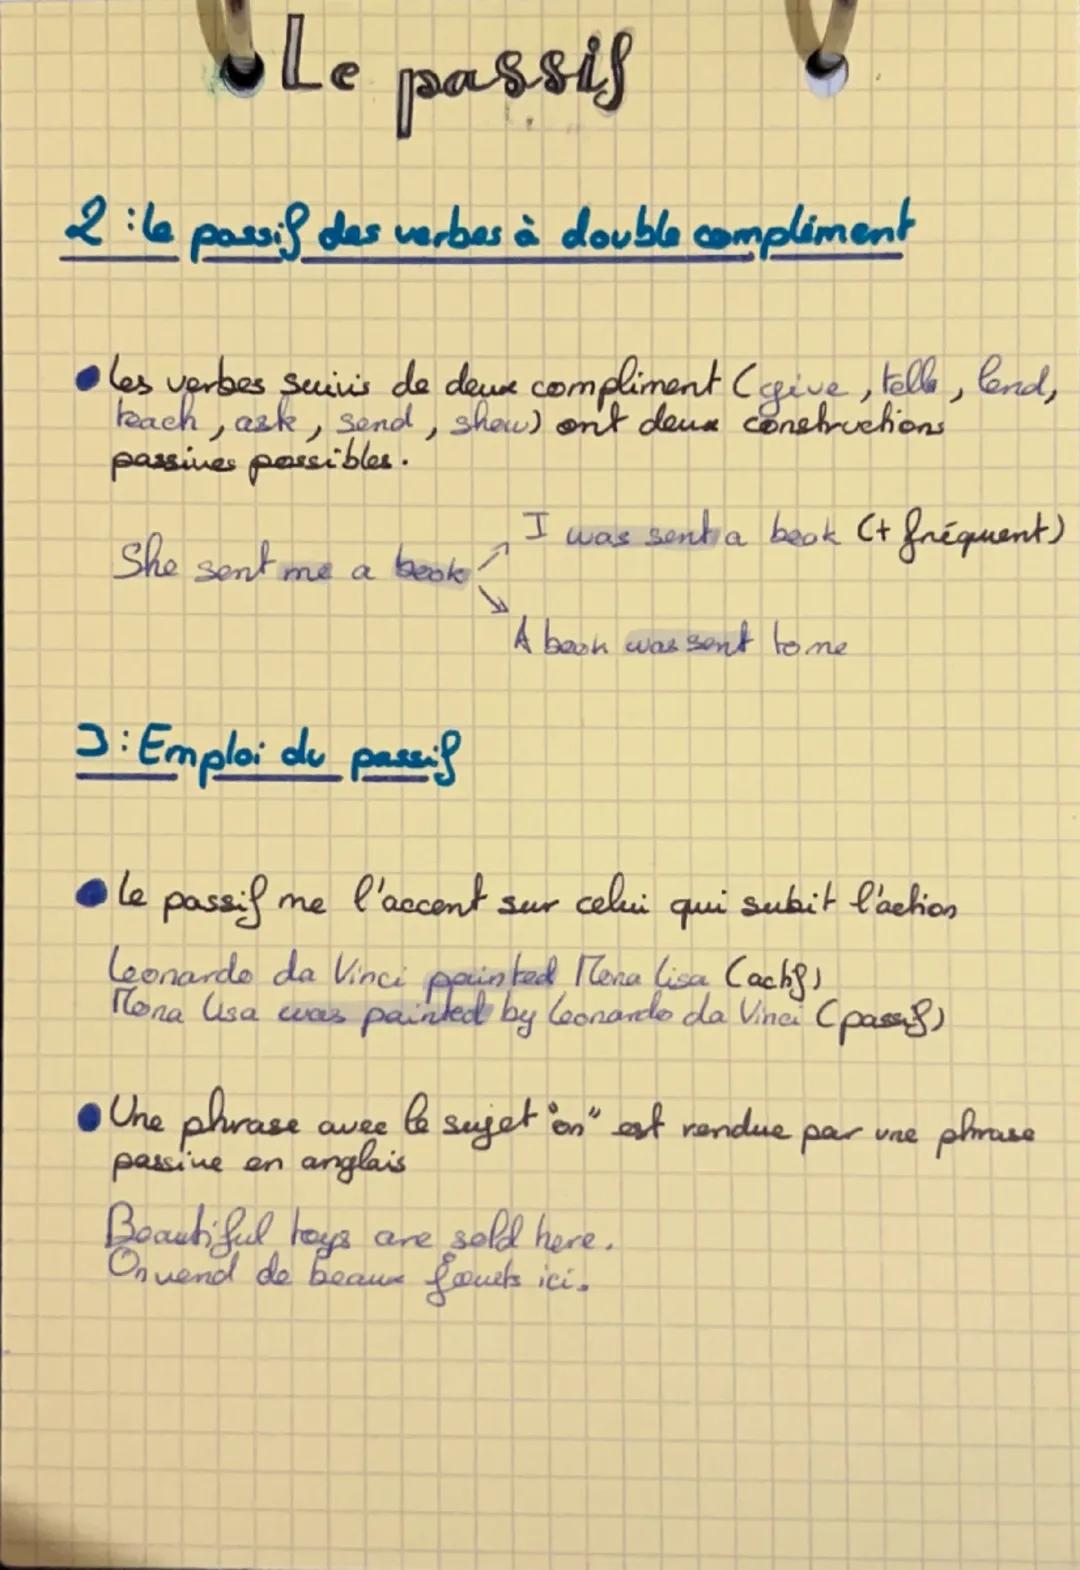 Le passif
2 : le passif des verbes à double complément
Les verbes suivis de deux compliment (give, tells, lend,
teach, ask, send, show) ont deux constructions
passives possibles.
I was sent a book (+ fréquent)
She sent me a book
A book was sent to me
3 : Emploi du passif
Le passif me l'accent sur celui qui subit l'action
Leonardo da Vinci painted Mona Lisa (actif)
Mona Lisa was painted by Leonardo da Vinci (passif)
Une phrase avec le sujet "on" est rendue par une phrase
passive en anglais
Beautiful toys are sold here.
On vend de beaux jouets ici.